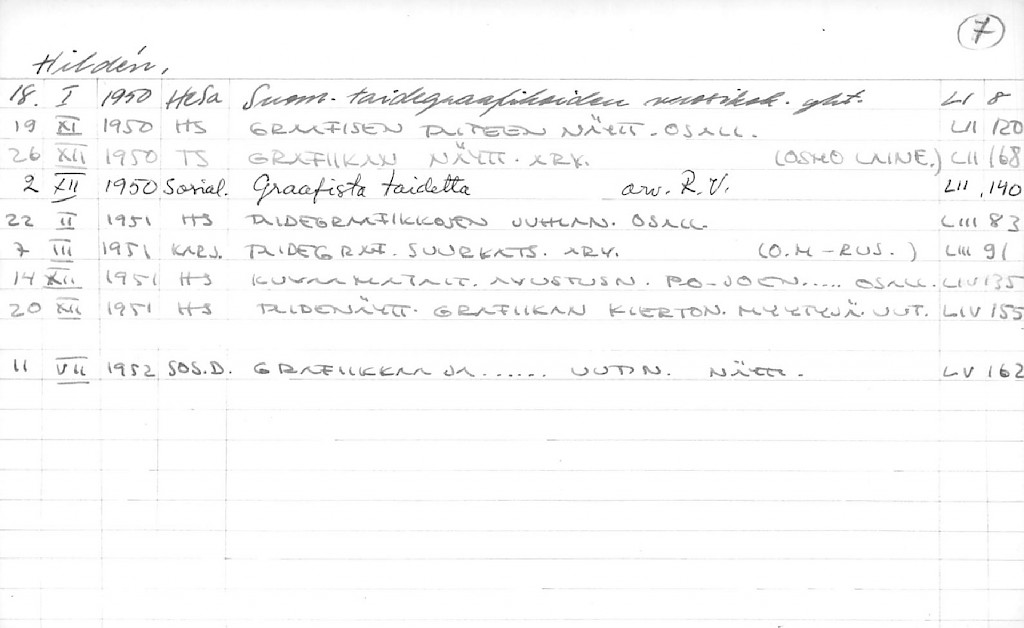 7
Hildén,
18. I 1950 HeSa Suom. taidegraafikoiden vuosikok. yht. LI 8
19 XI 1950 HS GRAFISEN TAITEEN NÄYTT. OSALL. LII 120
26 XII 1950 TS GRAFIIKAN NÄYTT. ARV. (OSMO LAINE.) LII 168
2 XII 1950 Sosial. Graafista taidetta arv. R.V. LII, 140
22 II 1951 HS TAIDEGRAFIIKKOJEN JUHLAN. OSALL. LIII 83
7 III 1951 KARJ. TAIDEGRAF. SUURKATS. ARV. (O.M-RUS.) LIII 91
14 XII 1951 HS KUVAAMATAIT. AVUSTUSN. PO-JOEN..... OSALL. LIV 135
20 XII 1951 HS TAIDENÄYTT. GRAFIIKAN KIERTON. MYYTYJÄ. UUT. LIV 155
11 VII 1952 SOS.D. GRAFIIKKAA JA ...... UUDN. NÄYTT. LV 162